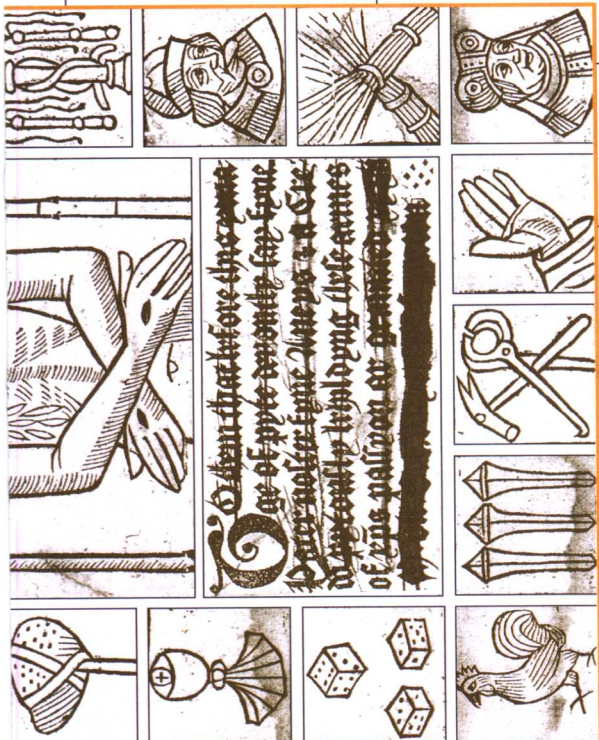 To them that before this ym
age of pyte deuoutly sey fyue
Pater noster fyue Aueys & a Cre
de pyteously beholdyng these armes
of xp̄s passyon ar graunted